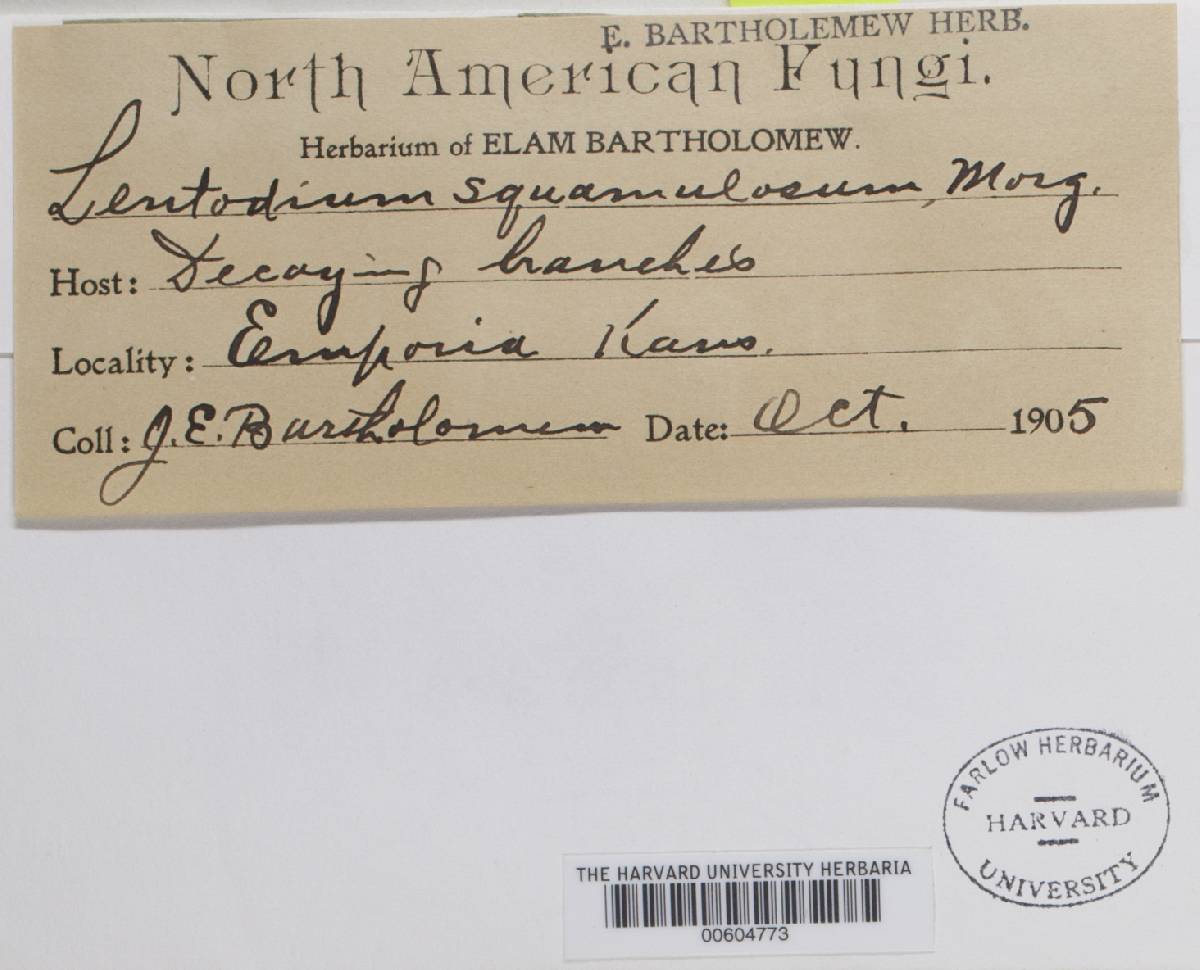 E. BARTHOLEMEW HERB.
North American Fungi.
Herbarium of ELAM BARTHOLOMEW.
Lentodium squamulosum, Morg.
Host: Decaying branches
Locality: Emporia Kans.
Coll: J. E. Bartholomew Date: Oct. 1905
FARLOW HERBARIUM
HARVARD
UNIVERSITY
THE HARVARD UNIVERSITY HERBARIA
00604773